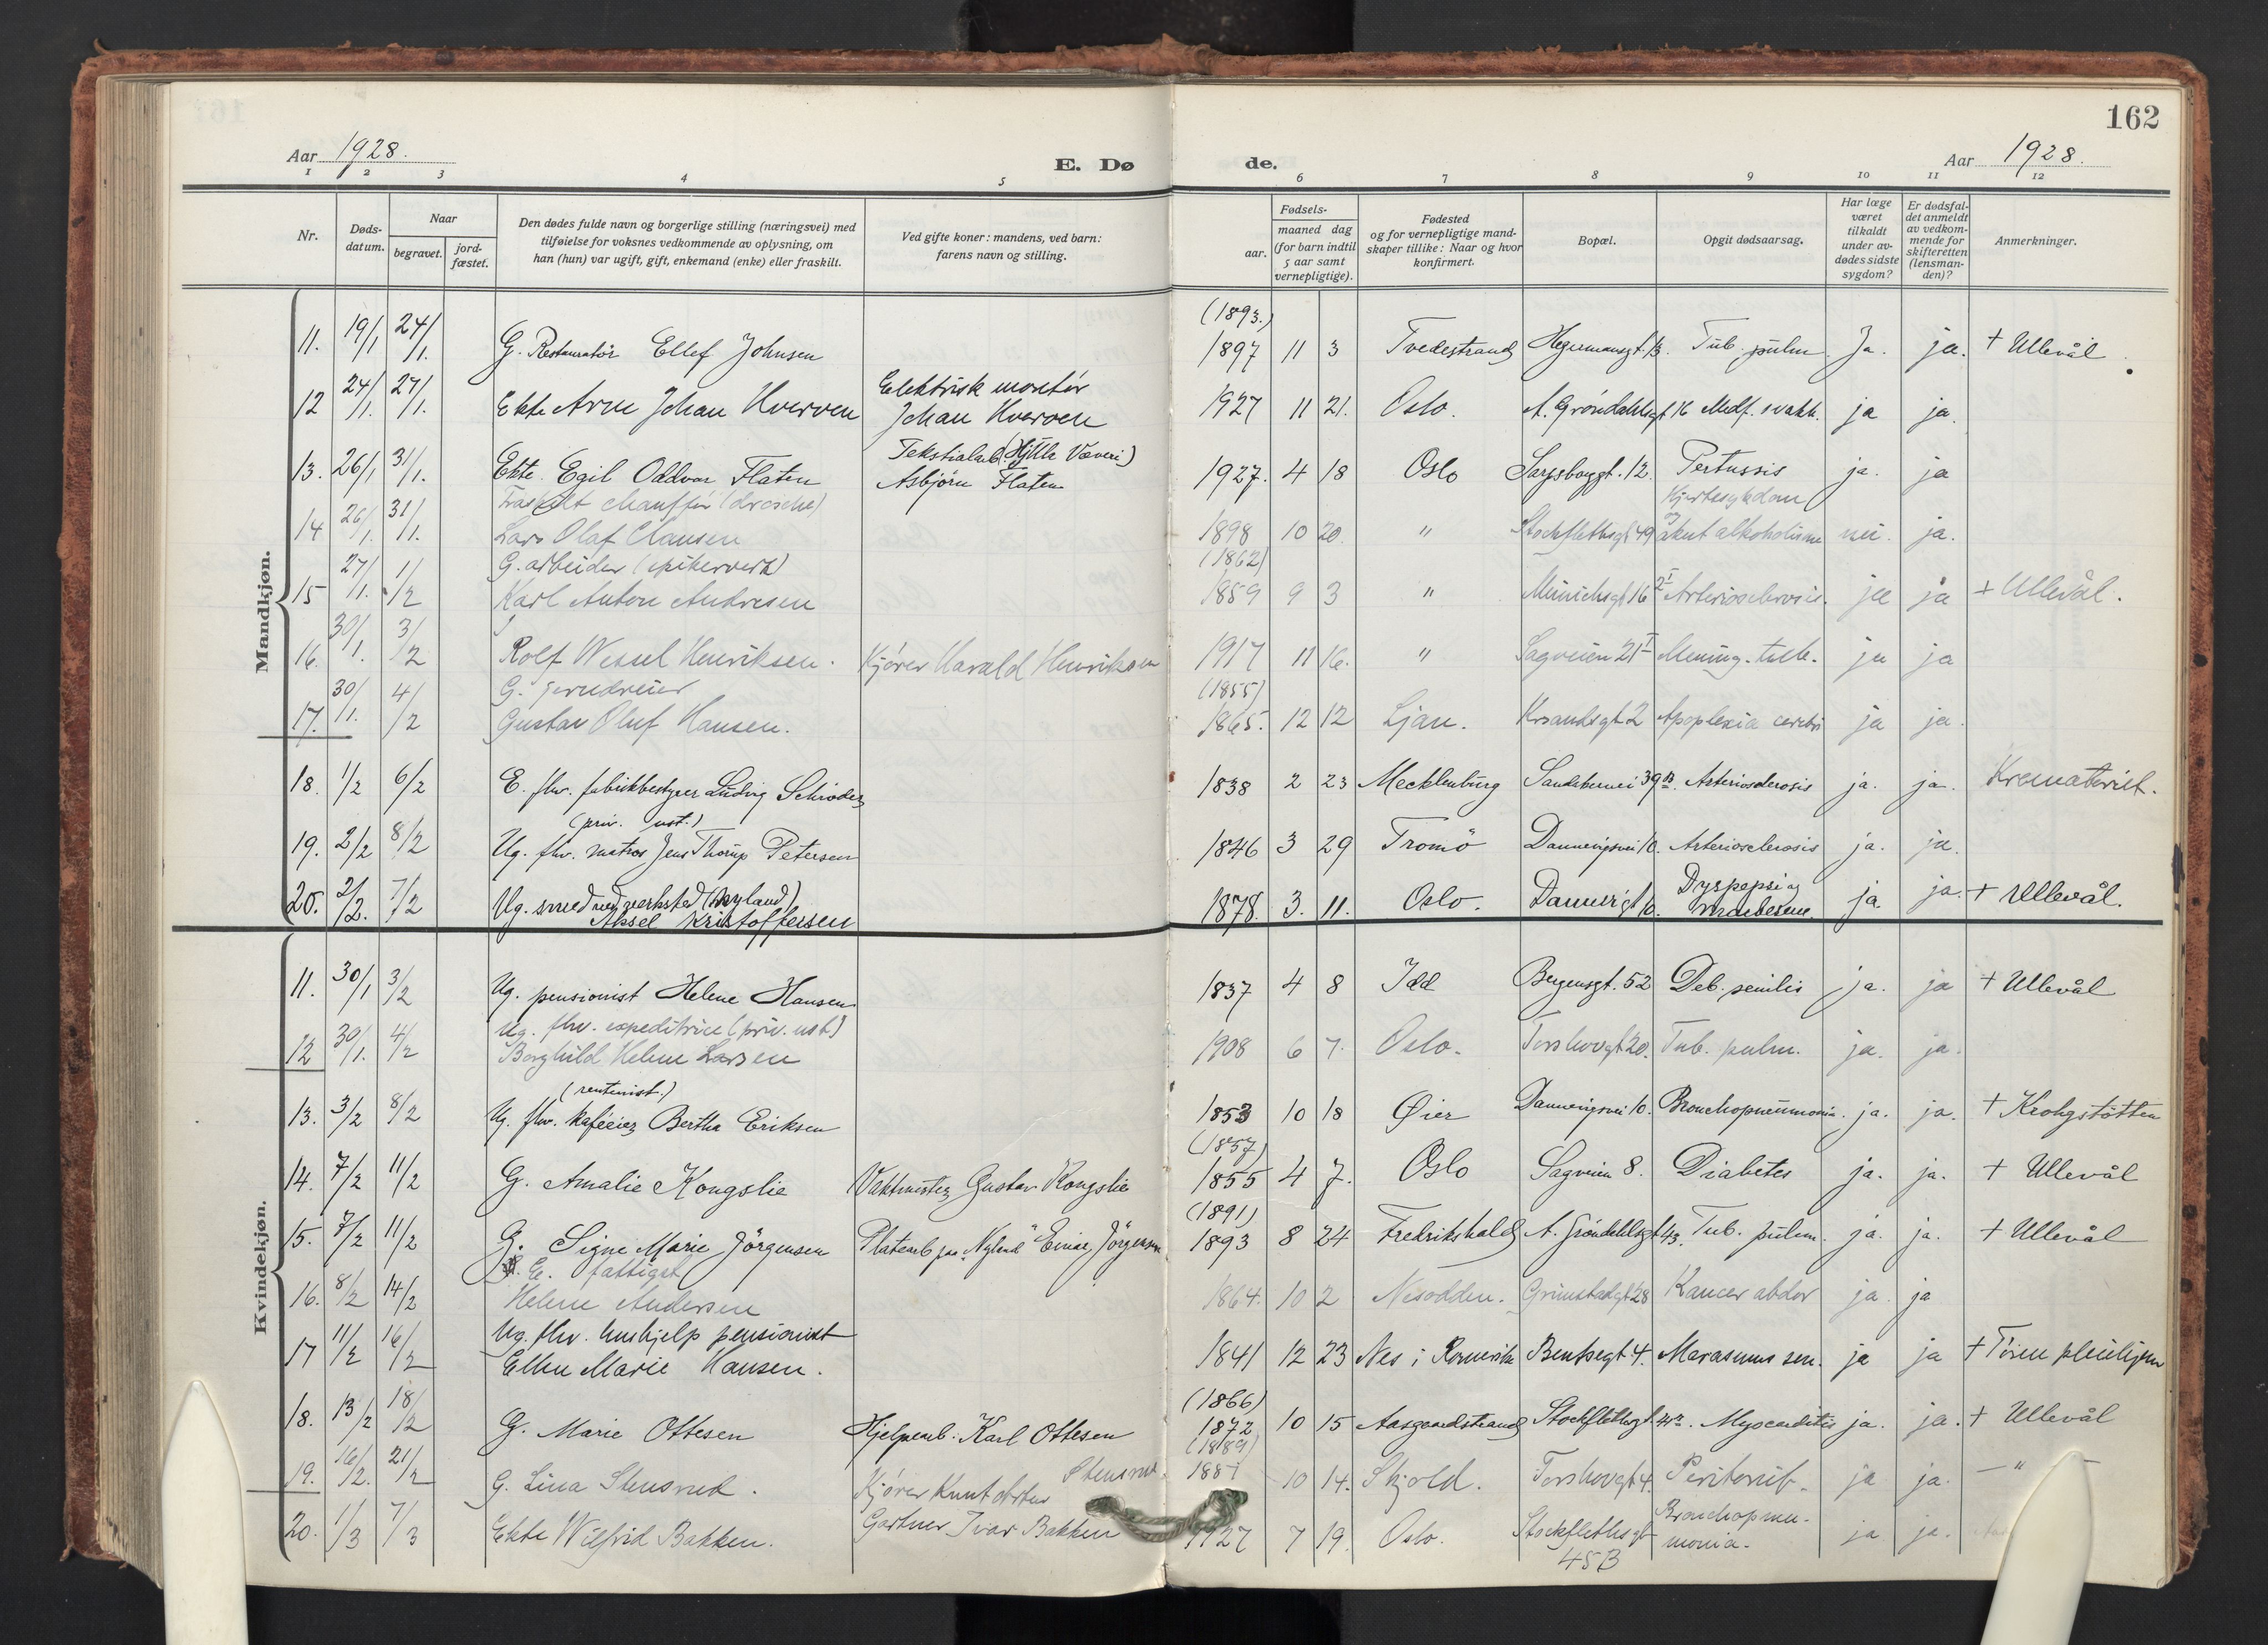 162
Aar 1928.
E. Dø
de.
Aar 1928.
1 2 3 4 5 6 7 8 9 10 11 12
Nr.
Døds-
datum.
Naar
begravet.
jord-
fæstet.
Den dødes fulde navn og borgerlige stilling (næringsvei) med
tilføielse for voksnes vedkommende av oplysning, om
han (hun) var ugift, gift, enkemand (enke) eller fraskilt.
Ved gifte koner: mandens, ved barn:
farens navn og stilling.
Fødsels-
aar.
maaned dag
(for barn indtil
5 aar samt
vernepligtige).
Fødested
og for vernepligtige mand-
skaper tillike: Naar og hvor
konfirmert.
Bopæl.
Opgit dødsaarsag.
Har læge
været
tilkaldt
under av-
dødes sidste
sygdom?
Er dødsfal-
det anmeldt
av vedkom-
mende for
skifteretten
(lensman-
den)?
Anmerkninger.
Mandkjøn.
(1893.)
11. 19/1 24/1. G. Restauratør Ellef Johnsen 1897 11 3 Tvedestrand Hegermannsgt. 13. Tub. pulm. Ja. ja. + Ullevål
Elektrisk montør
12 24/1. 27/1. Ekte Arne Johan Hverven Johan Hverven 1927 11 21. Oslo. A. Grøndahlsgt 16 Medf. svakh. ja ja.
Tekstilarb. (Hjula Væveri)
13. 26/1 31/1. Ekte Egil Oddvar Flaten Asbjørn Flaten 1927. 4 18 Oslo Sarpsborggt. 12. Pertussis ja. ja
Fraskilt chauffør (drosche) Hjertesykdom
14 26/1. 31/1. Lars Olaf Clausen 1898 10 20. " Stockflethsgt 49 og akut alkoholisme nei. ja.
G. arbeider (spikerverk) (1862)
15 27/1. 1/2 Karl Anton Andresen 1859 9 3 " Münichsgt 16 Arteriosclerosis. ja ja + Ullevål.
16. 30/1. 3/2 Rolf Wessel Henriksen. Kjører Harald Henriksen 1917 11 16. " Sagveien 21 I Mening. tub. ja ja
G. (1855)
17. 30/1. 4/2 Gustav Oluf Hansen. 1865. 12 12 Ljan. Krsandsgt 2 Apoplexia cerebri ja ja.
18. 1/2 6/2 E. fhv. fabrikbestyrer Ludvig Schröder 1838 2 23 Mecklenburg Sandakervei 39 B. Arteriosclerosis ja. ja. Krematoriet.
(priv. ust.)
19. 2/2 8/2 Ug. fhv. matros Jens Thorup Petersen 1846 3 29 Tromö Dannevigsvei 10. Arteriosclerosis ja. ja.
20. 2/2. 7/2 Ug. smed ved verksted (Nyland)
Aksel Kristoffersen 1878. 3. 11. Oslo. Dannevigt 10. Dyspepsi og ja. ja. + Ullevål.
Kvindekjøn.
11. 30/1 3/2 Ug. pensionist Helene Hansen. 1837 4 8 Idd Bergensgt. 52 Deb. senilis ja. ja + Ullevål
Ug. fhv. expeditrice (priv. ust)
12 30/1. 4/2 Borghild Helene Larsen 1908 6 7. Oslo. Torshovgt 20. Tub. pulm. ja. ja.
(rentenist.)
13. 3/2 8/2 Ug. fhv. kaféeier Bertha Eriksen 1853 10 18 Øier Dannevigsvei 10. Bronchopneumonia. ja. ja. + Krohgstøtten
(1857)
14. 7/2 11/2 G. Amalie Kongslie Vaktmester Gustav Kongslie 1855 4 7. Oslo Sagveien 8. Diabetes ja. ja. + Ullevål
(1891)
15. 7/2 11/2 G. Signe Marie Jörgensen Platearb. paa "Nyland" Einar Jörgensen 1893 8 24 Fredrikshald A. Grøndahlsgt 43. Tub. pulm. ja. ja. + Ullevål
E. fattigst
16. 8/2 14/2 Helene Andersen 1864. 10 2 Nesodden. Grimstadgt 28 Kancer abdom ja. ja
Ug. fhv. hushjelp pensionist
17 11/2 16/2 Ellen Marie Hansen. 1841 12 23 Nes i Romerike Bentsegt. 4. Marasmus sen. ja ja + Tøien pleiehjem
(1866)
18. 13/2 18/2 G. Marie Ottesen Hjelpearb. Karl Ottesen 1872 10 15 Aasgaardstrand Stockflethsgt. Myocarditis ja. ja. + Ullevål
(1889) Stensrud.
19. 16/2. 21/2 G. Lina Stensrud. Kjører Knut 1887 10 14. Skjold. Torshovgt 4. Peritonit. ja ja. — " —
20. 1/3 7/3 Ekte Wilfrid Bakken. Gartner Ivar Bakken 1927 7 19. Oslo. Stockflethsgt 45B Bronchopneu-
monia. ja ja.